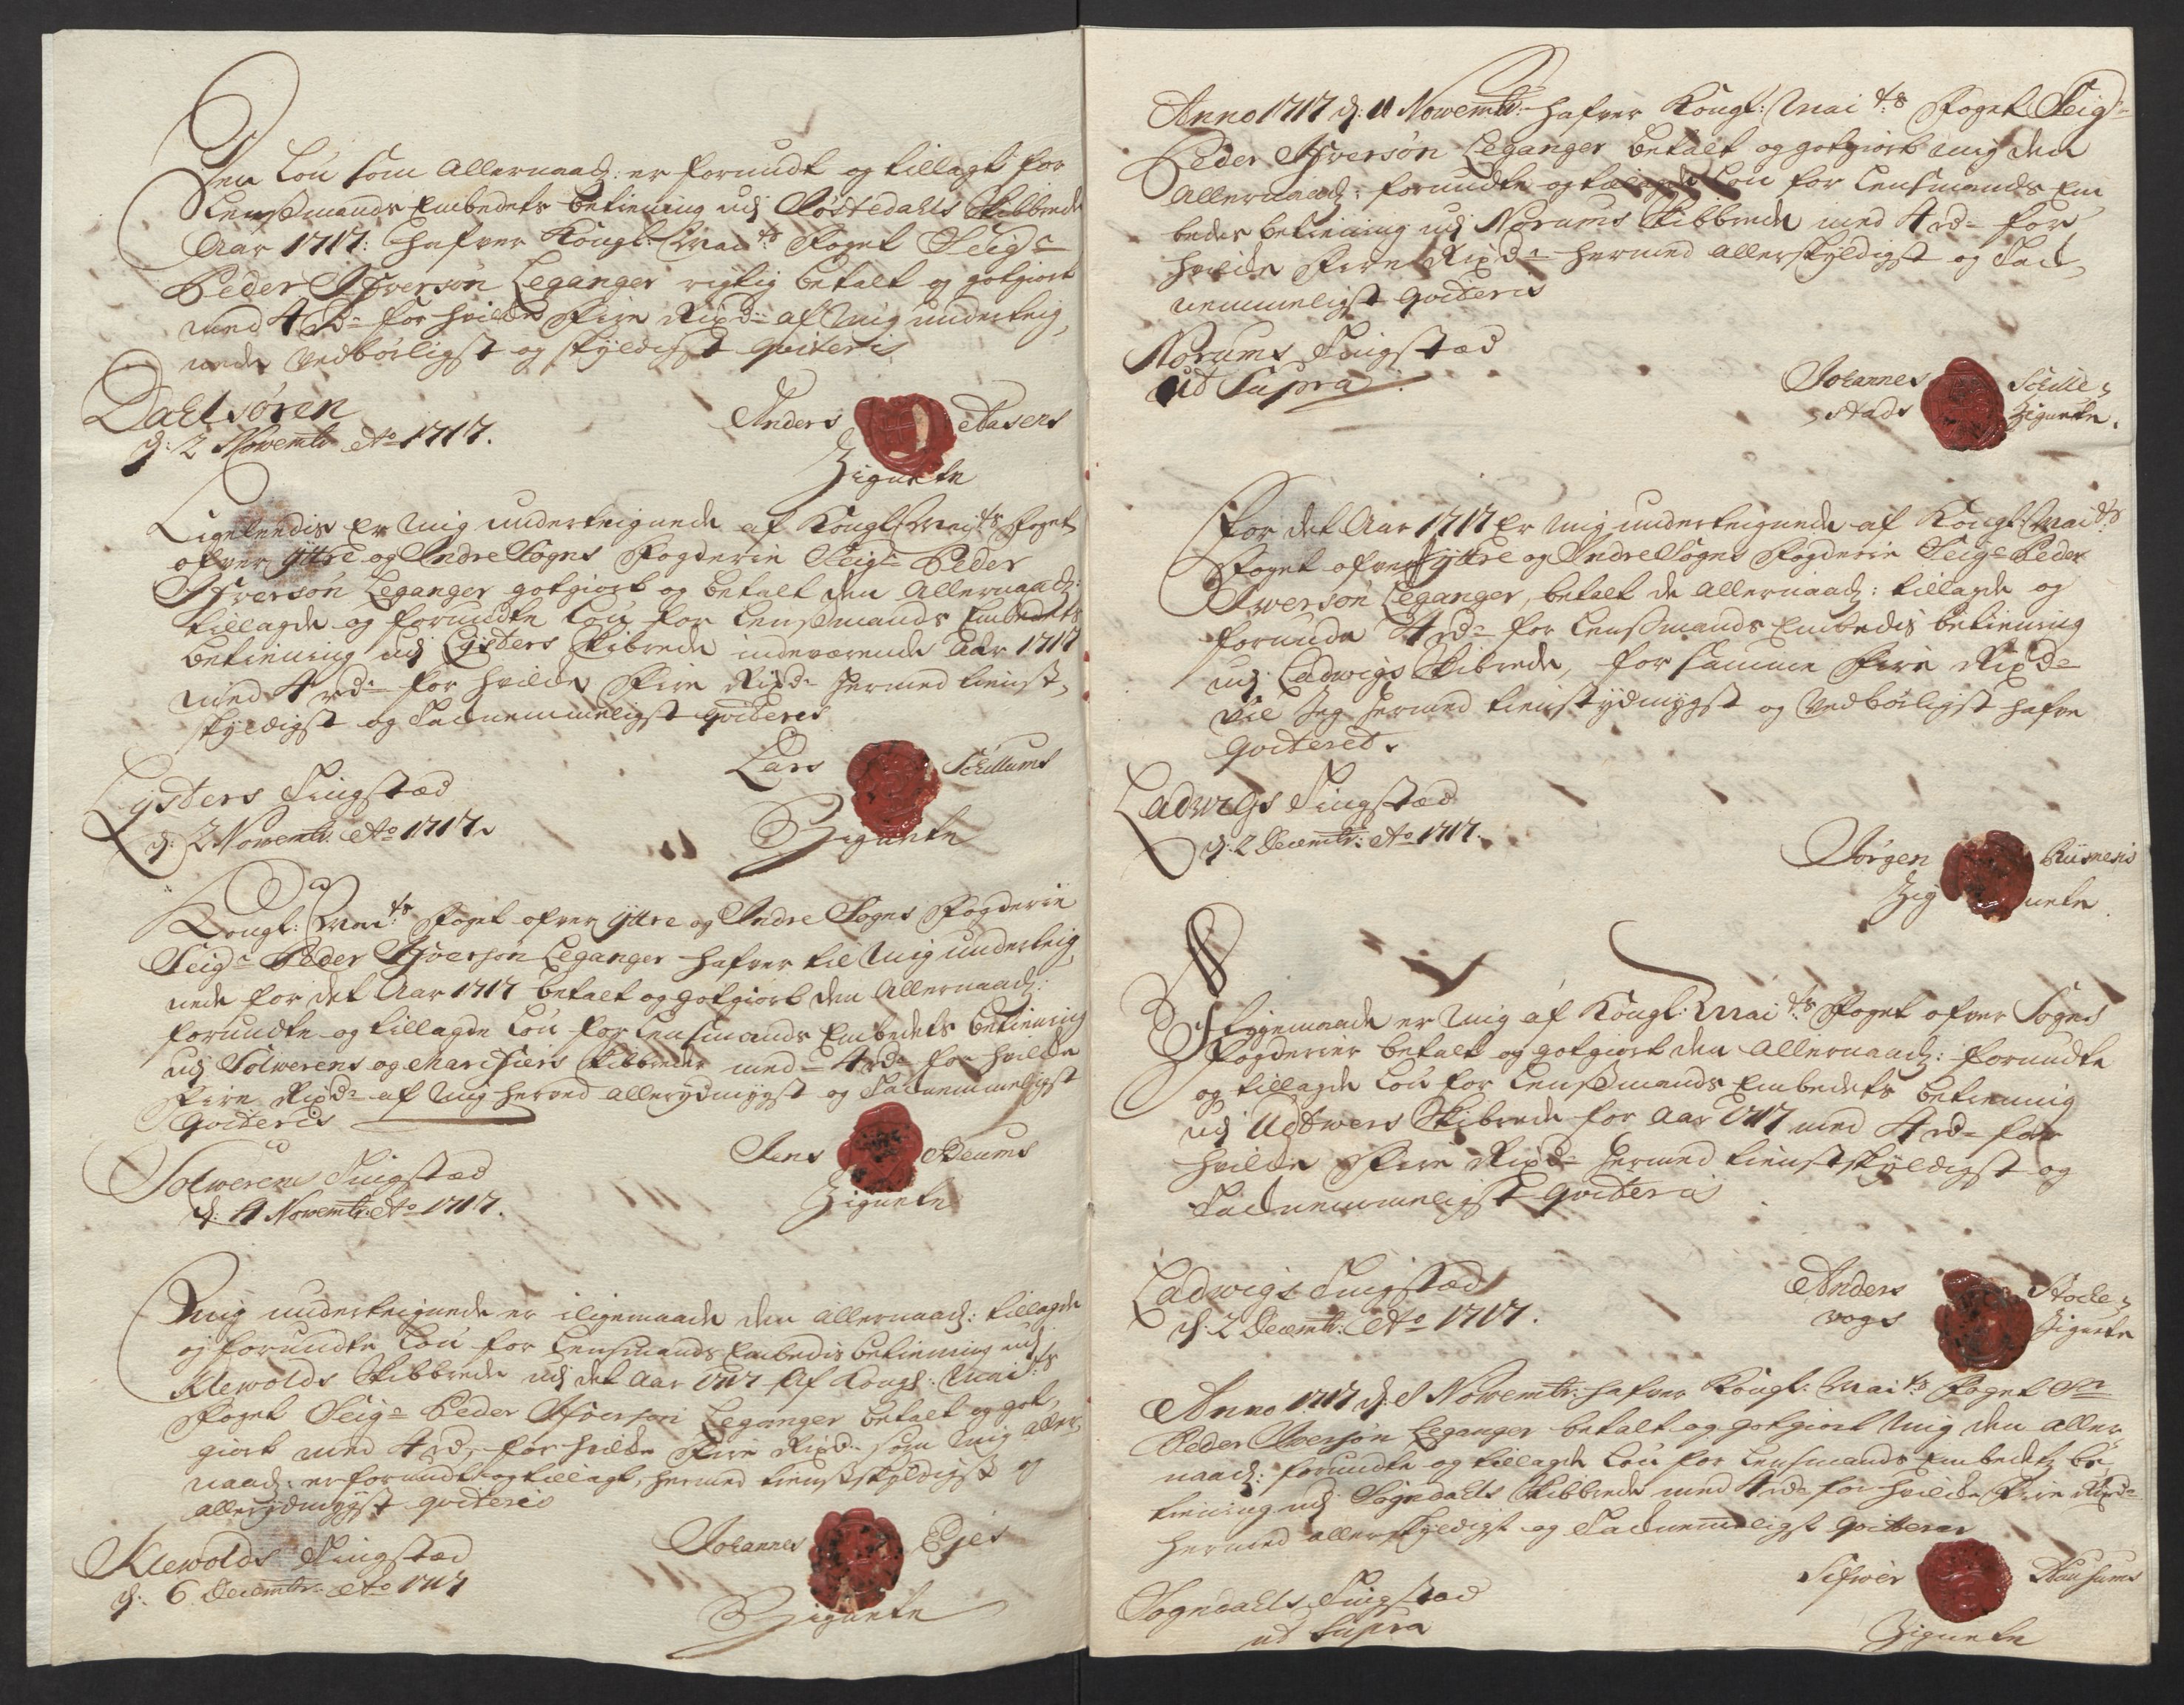 Den Løn som allernaad: er forundt og tillagt for
Lenssmands Embedets betiening udj Jostedahls Skibbrede
Aar 1717: hafver Kongl: Mai.ts Foget Seigr
Peder Ifversøn Leganger rigtig betalt og gotgiort
med 4 Rdr for hvilke Fire Rixdr af mig underteig,
nede vedbørligst og skyldigst qviteris
Dahlsøren
d: 2 Novembr Ao 1717.
Anders Aasens
Zignete
Ligeleedis er mig underteignede af Kongl: Mai.ts Foget
ofver yttre og Indre Sogns Fogderie Seigr Peder
Ifversøn Leganger gotgiort og betalt den allernaad:
tillagde og forundte Løn for Lenssmands Embedets
betiening udj Lysters Skibrede indeværende Aar 1717
med 4 rdr for hvilke Fire Rixdr hermed tienst,
skyldigst og Tacknemmeligst qviteres
Lysters Tingstæd
d: 2 Novembr: Ao 1717.
Lars Schiellums
Zignete
Kongl: Mai.ts Foget ofver yttre og Indre Sogns Fogderie
Seigr Peder Ifversøn Leganger hafver til mig underteig,
nede for det Aar 1717 betalt og gotgiort den allernaad:
forundte og tillagde Løn for Lensmands Embedets betiening
udj Solverens og Marifiers Skibbreder med 4 rdr for hvilke
Fire Rixdr af mig herved allerydmygst og Tacknemmeligst
qviteris
Solverens Tingstæd
d: 4 Novembr: Ao 1717.
Jens Beums
Zignete
Mig underteignede er iligemaade den allernaad: tillagde
og forundte Løn for Lensmands Embedis betiening udj
Klewolds Skibbrede udj det Aar 1717 af Kongl: Mai.ts
Foget Seigr Peder Ifversøn Leganger betalt og got,
giort med 4 rdr, for hvilke Fire Rixdr som mig aller,
naad: er forundt og tillagt, hermed tienstskyldigst og
allerydmygst qviteris
Klewolds Tingstæd
d: 6 Decembr: Ao 1717
Johannes Ejes
Zignete
Anno 1717 d: 11 Novembr: hafver Kongl: Mai.ts Foget Seigr
Peder Ifversøn Leganger betalt og gotgiort mig den
allernaad: forundte og tillagde Løn for Lensmands Em,
bedes betiening udj Norums Skibbrede med 4 rdr for
hvilke Fire Rixdr hermed allerskyldigst og Tack,
nemmeligst qviteris
Norums Tingstæd
ud Supra
Johannes Schille,
stads Zignete.
For det Aar 1717 er mig underteignede af Kongl: Mai.ts
Foget ofver yttre og Indre Sogns Fogderie Seigr Peder
Iversøn Leganger, betalt de allernaad: tillagde og
forunde 4 rdr for Lenssmands Embedis betiening
udj Ladwigs Skibrede, for samme Fire Rixdr
vil Jeg hermed tienstydmygst og vedbørligst hafve
qviteret.
Ladwigs Tingstæd
d: 2 Decembr: Ao 1717.
Jørgen
Zignete
I ligemaade er mig af Kongl: Mai.ts Foget ofver Sogns
Fogderier betalt og gotgiort den allernaad: forundte
og tillagde Løn for Lenssmands Embedets betiening
udj Udtwers Skibrede for Aar 1717 med 4 rdr for
hvilke Fire Rixdr hermed tienstskyldigst og
Tacknemmeligst qviteris
Ladwigs Tingstæd
d: 2 Decembr: Ao 1717.
Anders Stocke,
vogs Zignete
Anno 1717 d: 8 Novembr: hafver Kongl: Mai.ts Foget Sr
Peder Iversøn Leganger betalt og gotgiort mig den aller,
naad: forundte og tillagde Løn for Lensmands Embedetz be,
tiening udj Sogndahls Skibbrede med 4 rdr for hvilcke Fire Rixdr
hermed allerskyldigst og Tacknemmeligst qviterer
Sogndahls Tingstæd
ut Supra
Sifwer
Zignete